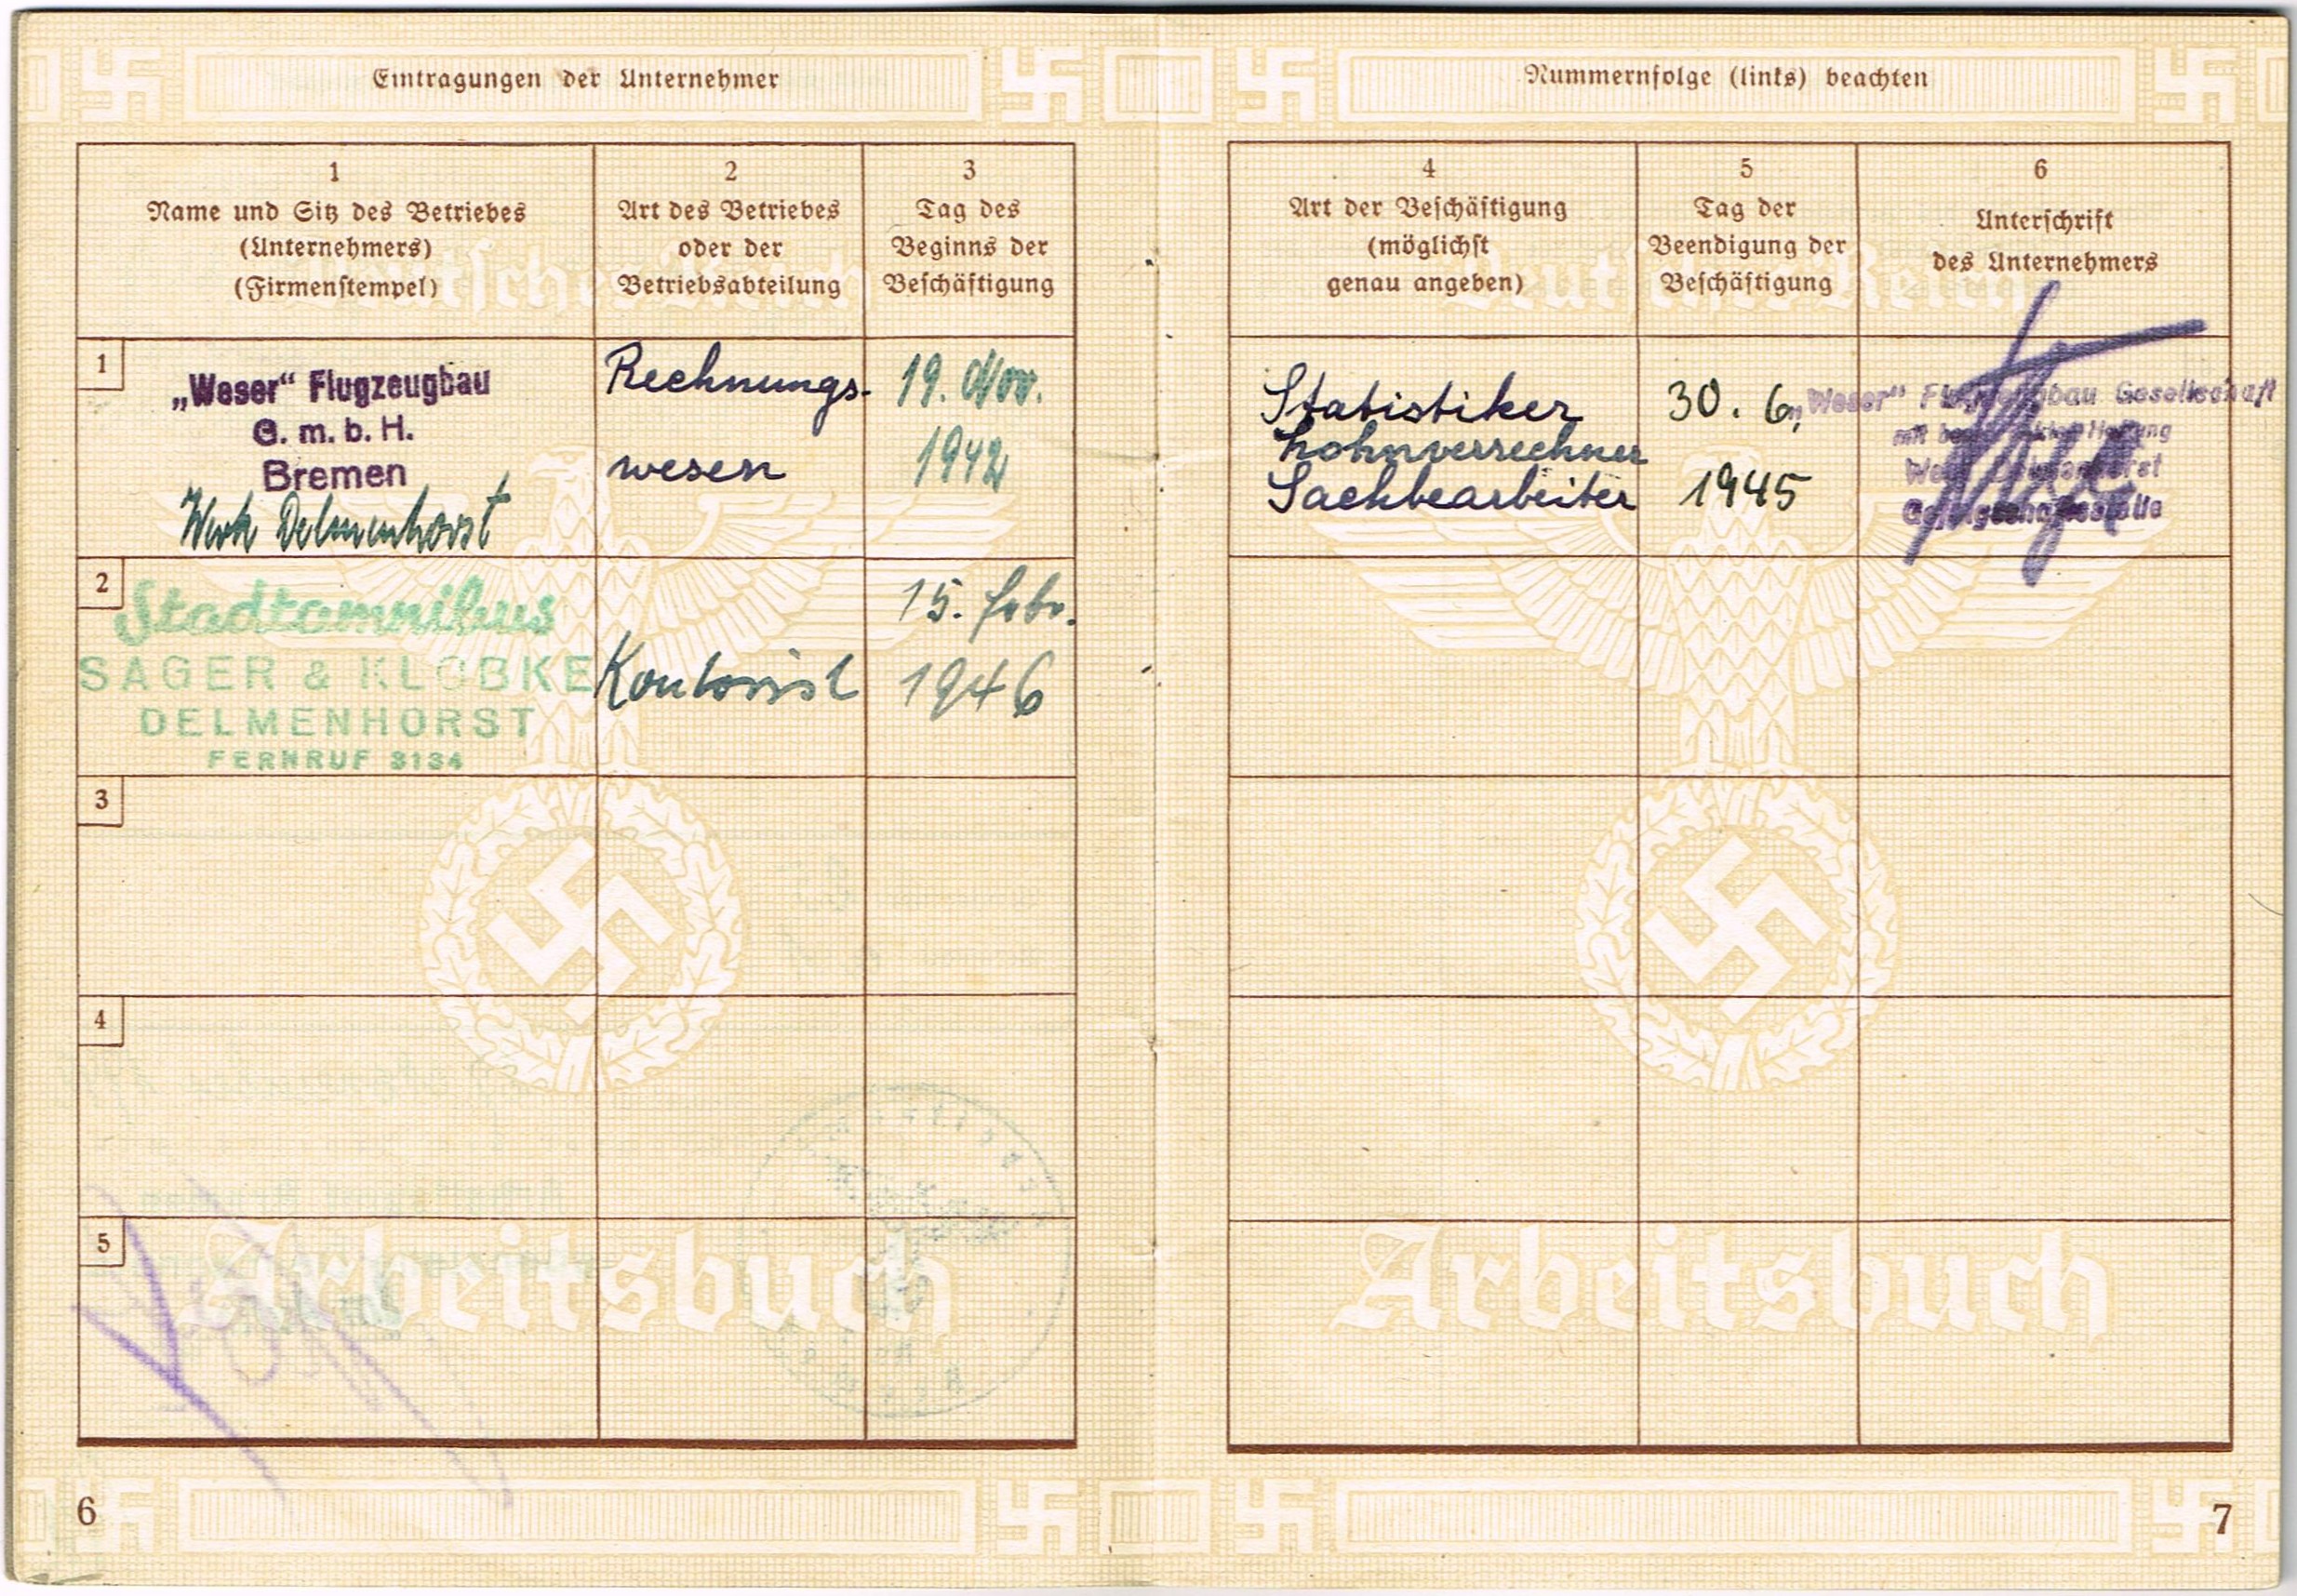 Eintragungen der Unternehmer
1
Name und Sitz des Betriebes
(Unternehmers)
(Firmenstempel)
2
Art des Betriebes
oder der
Betriebsabteilung
3
Tag des
Beginns der
Beschäftigung
1
„Weser“ Flugzeugbau
G. m. b. H.
Bremen
Werk Delmenhorst
Rechnungs-
wesen
19. Nov.
1942
2
Stadtomnibus
SAGER & KLOBKE
DELMENHORST
FERNRUF 3134
Kontorist
15. Febr.
1946
3
4
5
Deutsches Reich
Arbeitsbuch
6
Nummernfolge (links) beachten
4
Art der Beschäftigung
(möglichst
genau angeben)
5
Tag der
Beendigung der
Beschäftigung
6
Unterschrift
des Unternehmers
Statistiker
Lohnverrechner
Sachbearbeiter
30. 6.
1945
„Weser“ Flugzeugbau Gesellschaft
mit beschränkter Haftung
Werk Delmenhorst
Gefolgschaftsstelle
Deutsches Reich
Arbeitsbuch
7